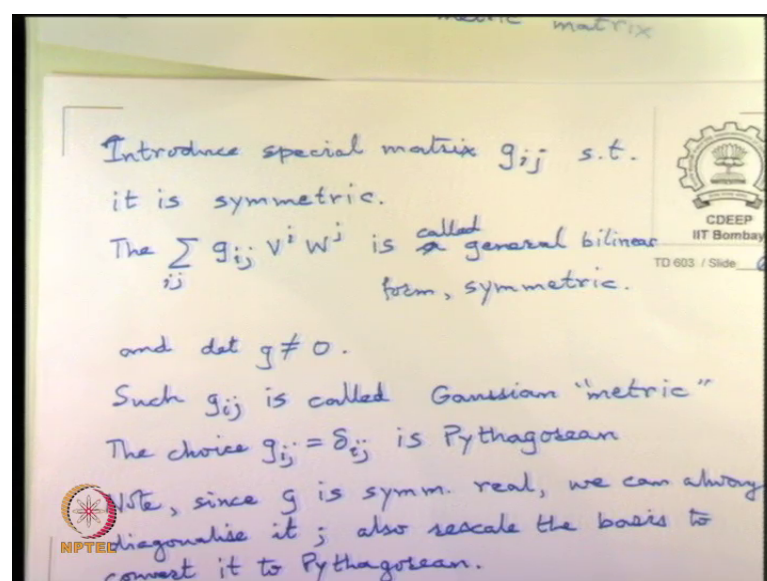 metric matrix
Introduce special matrix gij s.t.
it is symmetric.
The Σij gij vi wj is called general bilinear
form, symmetric.
CDEEP
IIT Bombay
TD 603 / Slide
and det g ≠ 0.
Such gij is called Gaussian "metric"
The choice gij = δij is Pythagorean
Note, since g is symm. real, we can always
diagonalise it ; also rescale the basis to
convert it to Pythagorean.
NPTEL